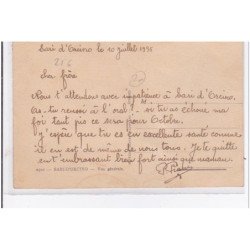 Sari d'Orcino le 10 juillet 1938
216
Cher frère
Nous t'attendons avec impatience à Sari d'Orcino.
As-tu reussi à l'oral? si tu as échoué ma
foi tant pis ce sera pour Octobre.
J'espère que tu es en excellente santé comme
il en est de même de nous tous. Je te quitte
en t'embrassant bien fort ainsi que maman.
SARI-D'ORCINO - Vue générale.